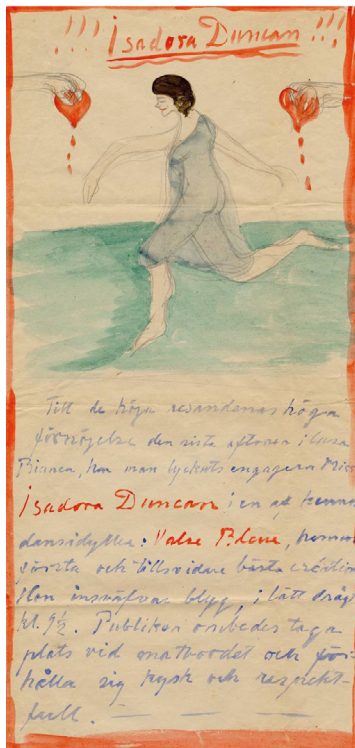 !!! Isadora Duncan !!!
Till de höga resandenas höga
förnöjelse den sista aftonen i Casa
Bianca, har man lyckats engagera Miss
Isadora Duncan i en af hennes
dansidyller: Valse Bleue, hennes
första och tillsvidare bästa
Hon insväfvar blyg, i lätt dräkt
kl. 9½. Publiken ombedes taga
plats vid matbordet och för-
hålla sig kysk och respekt-
full. — — —